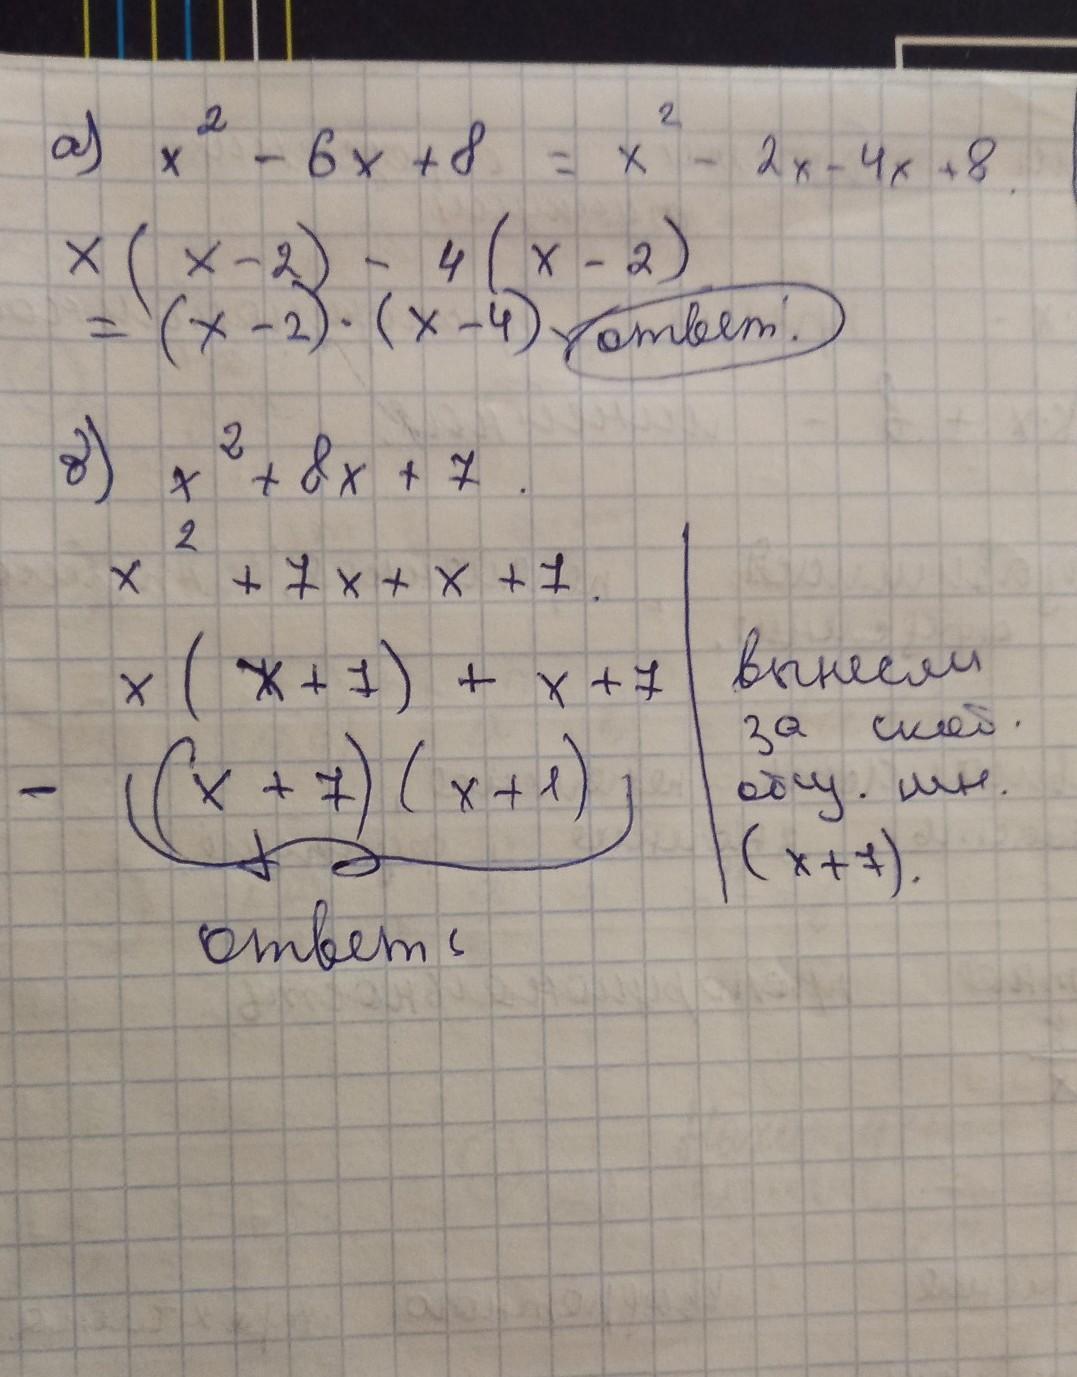 а) x² - 6x + 8 = x² - 2x - 4x + 8.
x ( x - 2) - 4 ( x - 2)
= (x - 2) · (x - 4) ответ.
б) x² + 8x + 7.
x² + 7x + x + 7.
x ( x + 7) + x + 7
- (x + 7) (x + 1)
ответ
вынесли
за скоб.
общ. мн.
(x + 7).